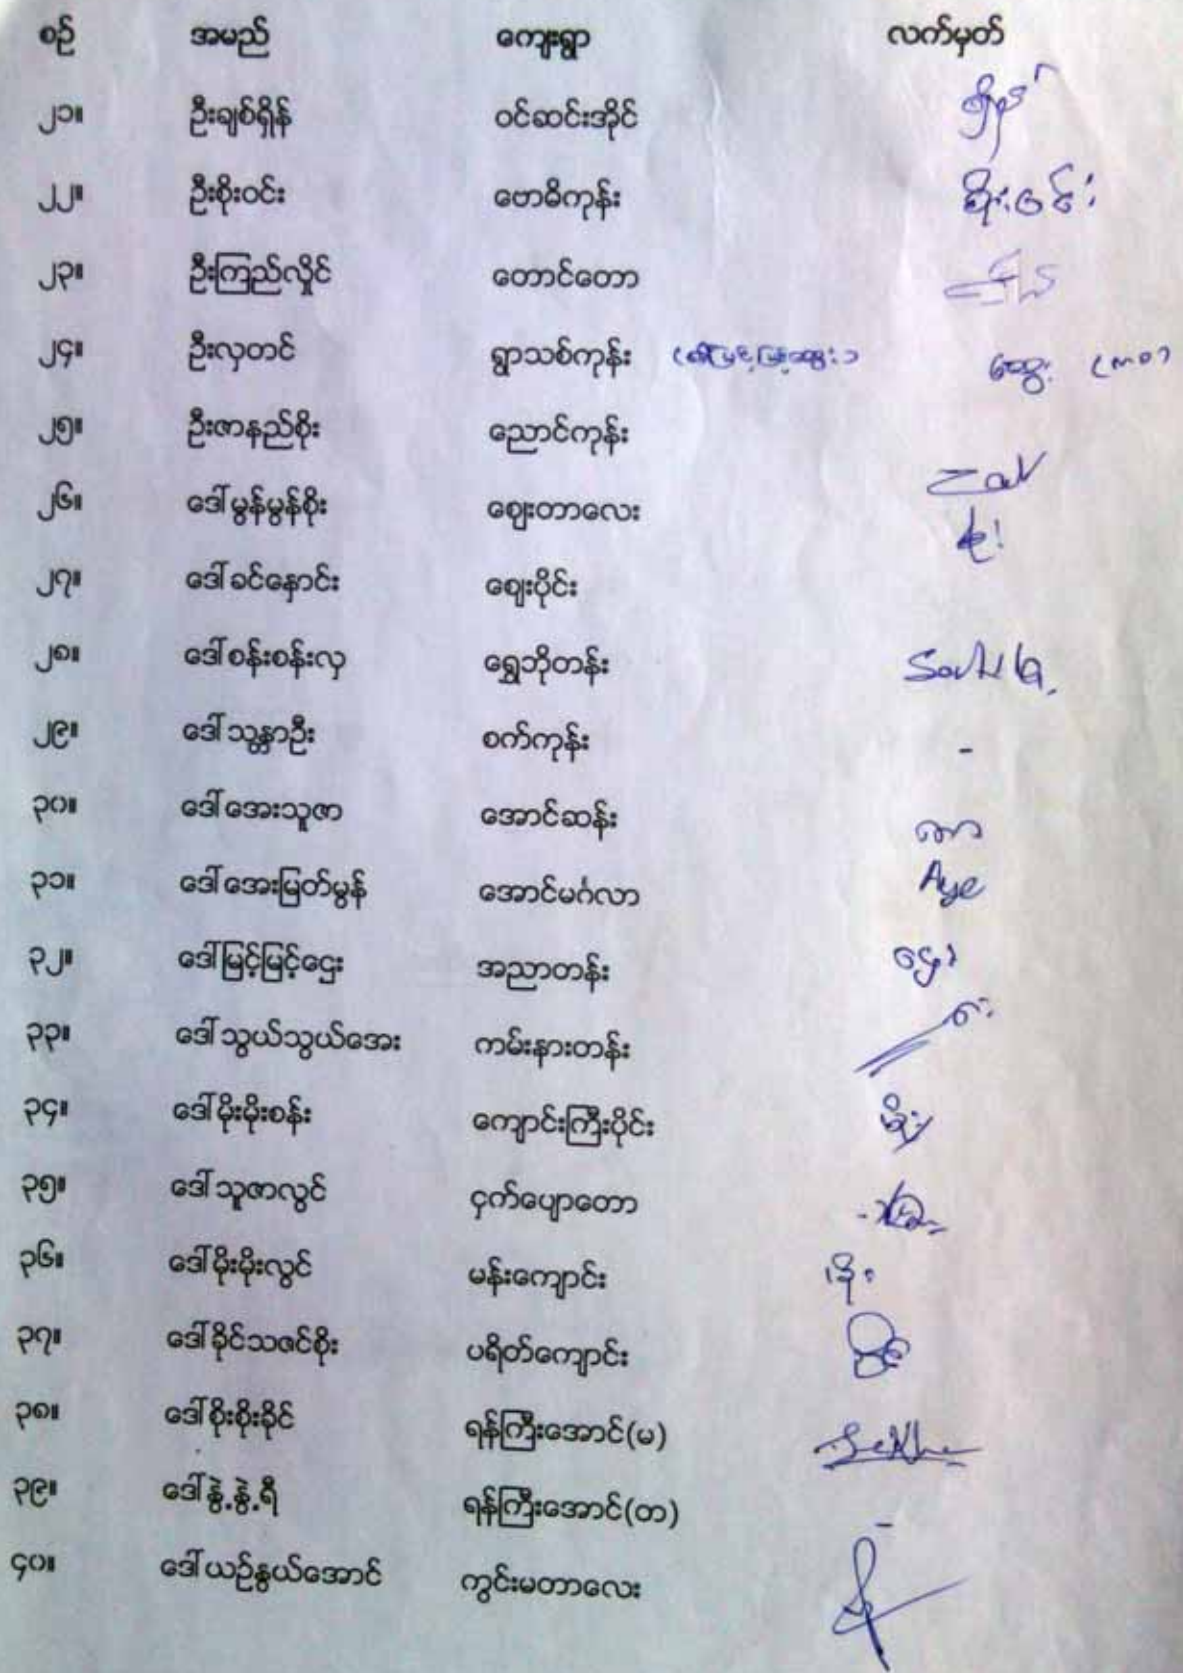 စဉ် အမည် ကျေးရွာ လက်မှတ်
၂၁။ ဦးချစ်ရှိန် ဝင်ဆင်းအိုင်
၂၂။ ဦးစိုးဝင်း ဗောဓိကုန်း စိုးဝင်း
၂၃။ ဦးကြည်လှိုင် တောင်တော
၂၄။ ဦးလှတင် ရွာသစ်ကုန်း
၂၅။ ဦးဇာနည်စိုး ညောင်ကုန်း
၂၆။ ဒေါ်မွန်မွန်စိုး ဈေးတာလေး
၂၇။ ဒေါ်ခင်နှောင်း ဈေးပိုင်း
၂၈။ ဒေါ်စန်းစန်းလှ ရွှေဘိုတန်း
၂၉။ ဒေါ်သန္တာဦး စက်ကုန်း -
၃၀။ ဒေါ်အေးသူဇာ အောင်ဆန်း
၃၁။ ဒေါ်အေးမြတ်မွန် အောင်မင်္ဂလာ Aye
၃၂။ ဒေါ်မြင့်မြင့်ဌေး အညာတန်း ဌေး
၃၃။ ဒေါ်သွယ်သွယ်အေး ကမ်းနားတန်း
၃၄။ ဒေါ်မိုးမိုးစန်း ကျောင်းကြီးပိုင်း မိုး
၃၅။ ဒေါ်သူဇာလွင် ငှက်ပျောတော
၃၆။ ဒေါ်မိုးမိုးလွင် မန်းကျောင်း မိုး
၃၇။ ဒေါ်ခိုင်သဇင်စိုး ပရိတ်ကျောင်း
၃၈။ ဒေါ်စိုးစိုးခိုင် ရန်ကြီးအောင်(မ)
၃၉။ ဒေါ်နွဲ့နွဲ့ရီ ရန်ကြီးအောင်(တ) -
၄၀။ ဒေါ်ယဉ်နွယ်အောင် ကွင်းမတာလေး